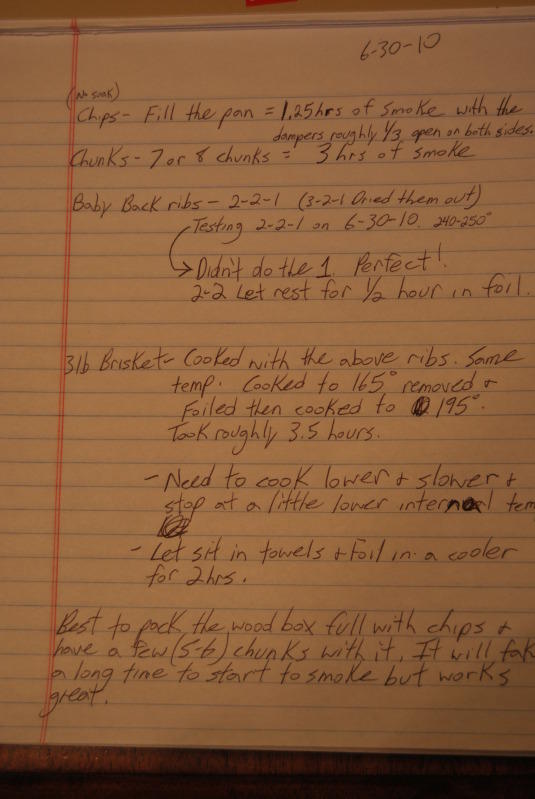 6-30-10
(No soak)
Chips- Fill the pan = 1.25hrs of smoke with the
dampers roughly 1/3 open on both sides.
Chunks- 7 or 8 chunks = 3 hrs of smoke
Baby Back ribs - 2-2-1 (3-2-1 Dried them out)
Testing 2-2-1 on 6-30-10. 240-250°
Didn't do the 1. Perfect!
2-2 Let rest for 1/2 hour in foil.
3lb Brisket- Cooked with the above ribs. Same
temp. Cooked to 165° removed +
Foiled then cooked to 195°.
Took roughly 3.5 hours.
- Need to cook lower + slower +
stop at a little lower internal tem
- Let sit in towels + foil in a cooler
for 2hrs.
Best to pack the wood box full with chips +
have a few (5-6) chunks with it. It will tak
a long time to start to smoke but works
great.